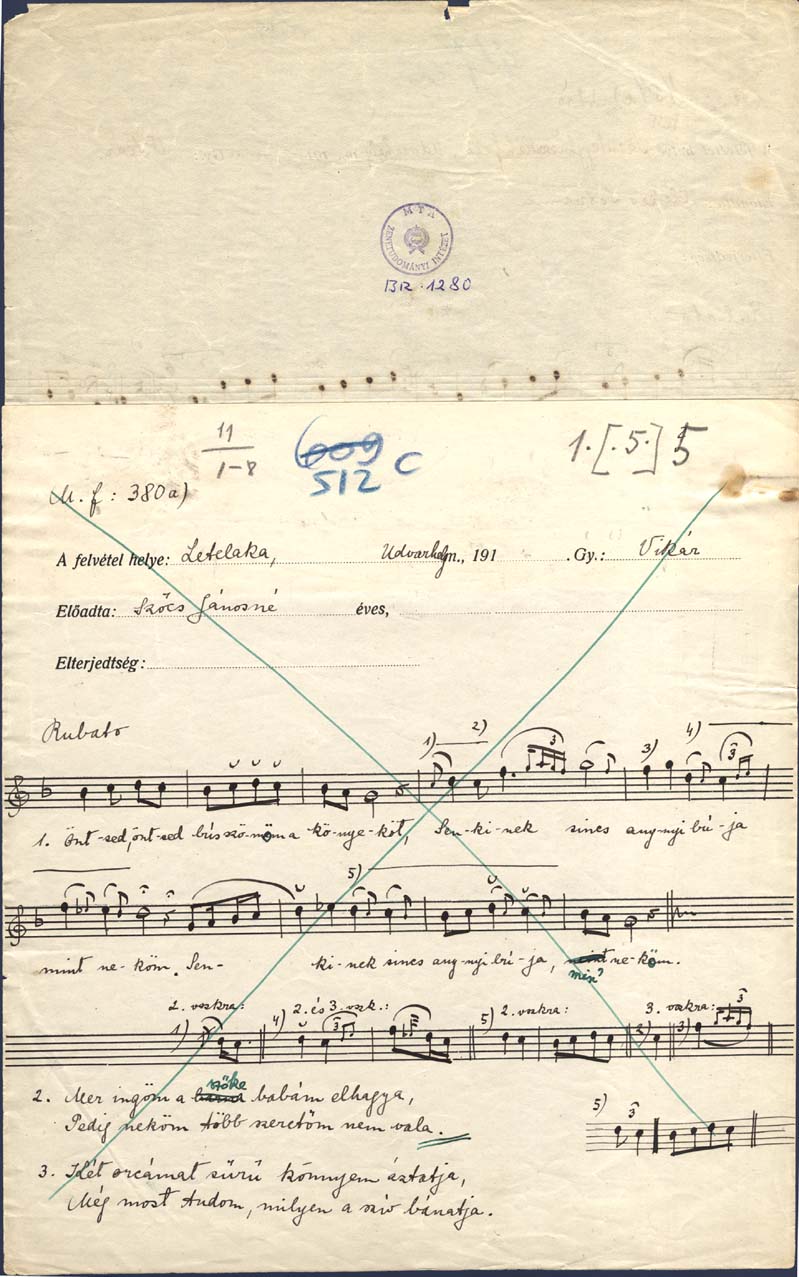 MTA
ZENETUDOMÁNYI INTÉZET
BR. 1280
11
1-8
609
512 C
1. [.5.] 5
M. f: 380a)
A felvétel helye: Letelaka, Udvarhelym., 191 Gy.: Vikár
Előadta: Szőcs Jánosné éves,
Elterjedtség:
Rubato
1) 2) 3 3) 4) 3
1. Önt-sed, önt-sed bús szö-möm a kö-nye-köt, Sen-ki-nek sincs any-nyi bú-ja
5)
mint ne-köm. Sen- ki-nek sincs any-nyi bú-ja, mint ne-köm.
min'
2. vszkra: 2. és 3. vszk.: 2. vszkra: 3. vszkra:
1) 4) 3 5) 2) 3) 3
szőke
2. Mer ingöm a barna babám elhagya,
Pedig neköm több szeretőm nem vala.
5) 3
3. Két orcámat sűrű könnyem áztatja,
Még most tudom, milyen a szív bánatja.